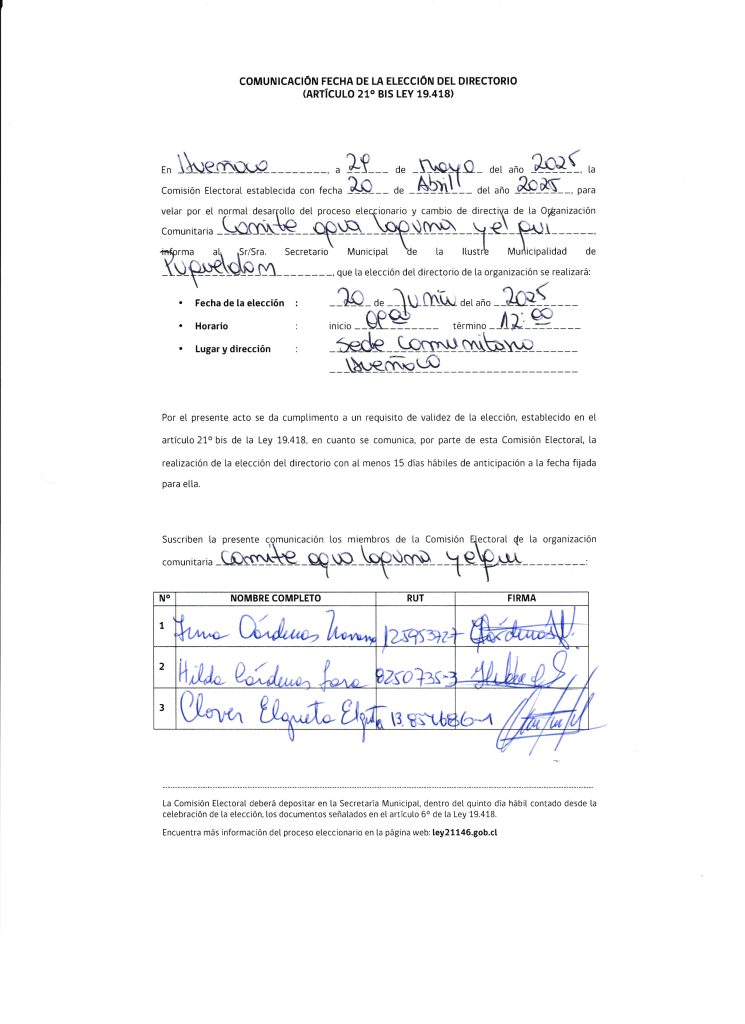 COMUNICACIÓN FECHA DE LA ELECCIÓN DEL DIRECTORIO
(ARTÍCULO 21º BIS LEY 19.418)
En Hueñoco, a 29 de Mayo del año 2025, la
Comisión Electoral establecida con fecha 20 de Abril del año 2025, para
velar por el normal desarrollo del proceso eleccionario y cambio de directiva de la Organización
Comunitaria Comite agua laguna yelqui,
informa al Sr/Sra. Secretario Municipal de la Ilustre Municipalidad de
Puqueldon, que la elección del directorio de la organización se realizará:
• Fecha de la elección : 20 de Junio del año 2025
• Horario : inicio término 12:00
• Lugar y dirección : Sede Comunitario
Hueñoco
Por el presente acto se da cumplimento a un requisito de validez de la elección, establecido en el
artículo 21º bis de la Ley 19.418, en cuanto se comunica, por parte de esta Comisión Electoral, la
realización de la elección del directorio con al menos 15 días hábiles de anticipación a la fecha fijada
para ella.
Suscriben la presente comunicación los miembros de la Comisión Electoral de la organización
comunitaria comite agua laguna yelqui:
Nº NOMBRE COMPLETO RUT FIRMA
1 Irma Cárdenas 12595372-7 Cárdenas
2 Hilda Cárdenas 8250735-3 Hilda
3 Clover Elgueta Elgueta 13.854686-1
La Comisión Electoral deberá depositar en la Secretaría Municipal, dentro del quinto día hábil contado desde la
celebración de la elección, los documentos señalados en el artículo 6º de la Ley 19.418.
Encuentra más información del proceso eleccionario en la página web: ley21146.gob.cl